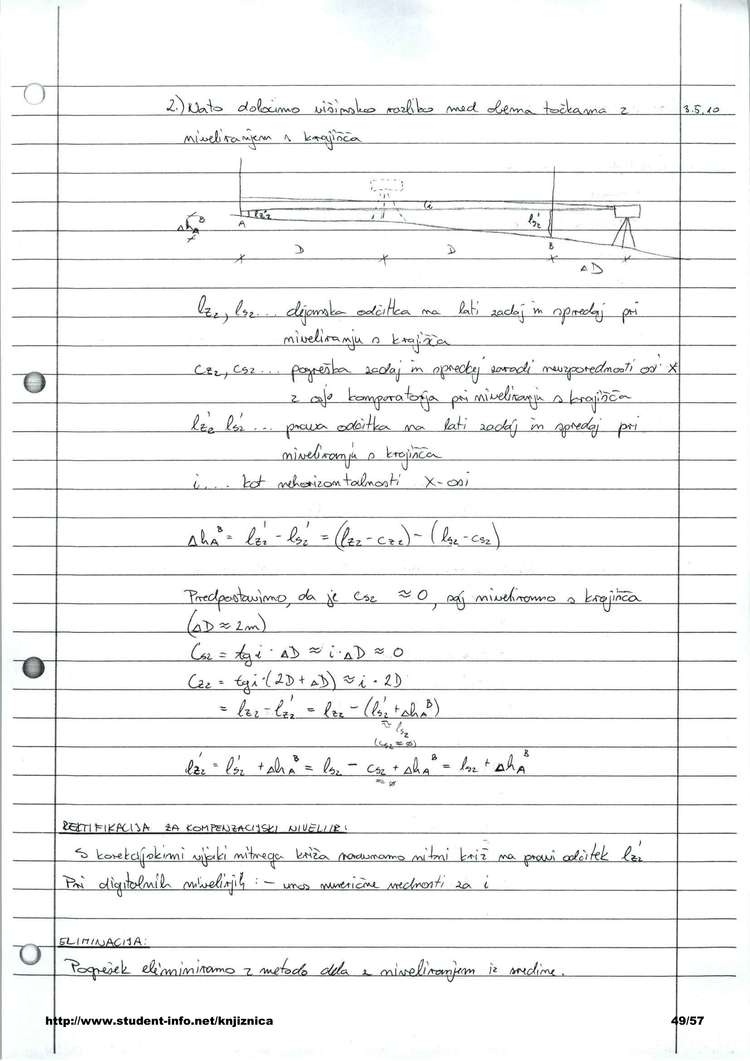 2.) Nato določimo višinsko razliko med obema točkama z
3.5.10
niveliranjem s krajišča
ΔhA^B
A
lz2'
i
ls2'
B
D
D
ΔD
lz2, ls2 ... dejanska odčitka na lati zadaj in spredaj pri
niveliranju s krajišča
cz2, cs2 ... pogreška zadaj in spredaj zaradi neuzporednosti osi X
z osjo kompenzatorja pri niveliranju s krajišča
lz2' ls2' ... prava odčitka na lati zadaj in spredaj pri
niveliranju s krajišča
i.... kot nehorizontalnosti X-osi
ΔhA^B = lz2' - ls2' = (lz2 - cz2) - (ls2 - cs2)
Predpostavimo, da je cs2 ≈ 0, saj niveliramo s krajišča
(ΔD ≈ 2m)
Cs2 = tg i · ΔD ≈ i · ΔD ≈ 0
Cz2 = tg i · (2D + ΔD) ≈ i · 2D
= lz2 - lz2' = lz2 - (ls2' + ΔhA^B)
≈ ls2
(cs2 = ø)
lz2' = ls2' + ΔhA^B = ls2 - cs2 + ΔhA^B = ls2 + ΔhA^B
= ø
REKTIFIKACIJA ZA KOMPENZACIJSKI NIVELIR:
S korekcijskimi vijaki nitnega križa naravnamo nitni križ na pravi odčitek lz2'
Pri digitalnih nivelirjih : - vnos numerične vrednosti za i
ELIMINACIJA:
Pogrešek eliminiramo z metodo dela z niveliranjem iz sredine.
http://www.student-info.net/knjiznica
49/57